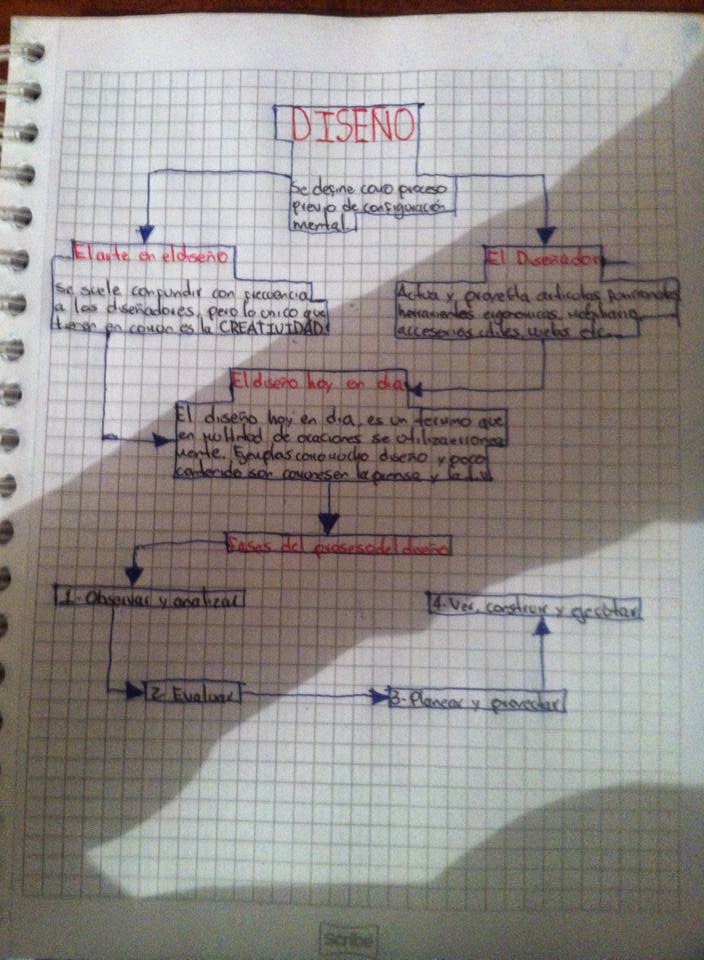 DISEÑO
Se define como proceso
previo de configuración
mental.
El arte en el diseño
Se suele confundir con frecuencia
a los diseñadores, pero lo unico que
tienen en comun es la CREATIVIDAD.
El Diseñador
Actua y proyecta articulos funcionales
herramientas ergonomicas, mobiliario,
accesorios utiles, webs etc...
El diseño hoy en dia
El diseño hoy en dia, es un termino que
en de ocaciones se utiliza
mente. Ejemplos como mucho diseño y poco
contenido son comunes en la prensa y la t.v
Fases del proseso del diseño
1- Observar y analizar
2- Evaluar
3- Planear y proyectar
4- Ver, construir y ejecutar
Scribe